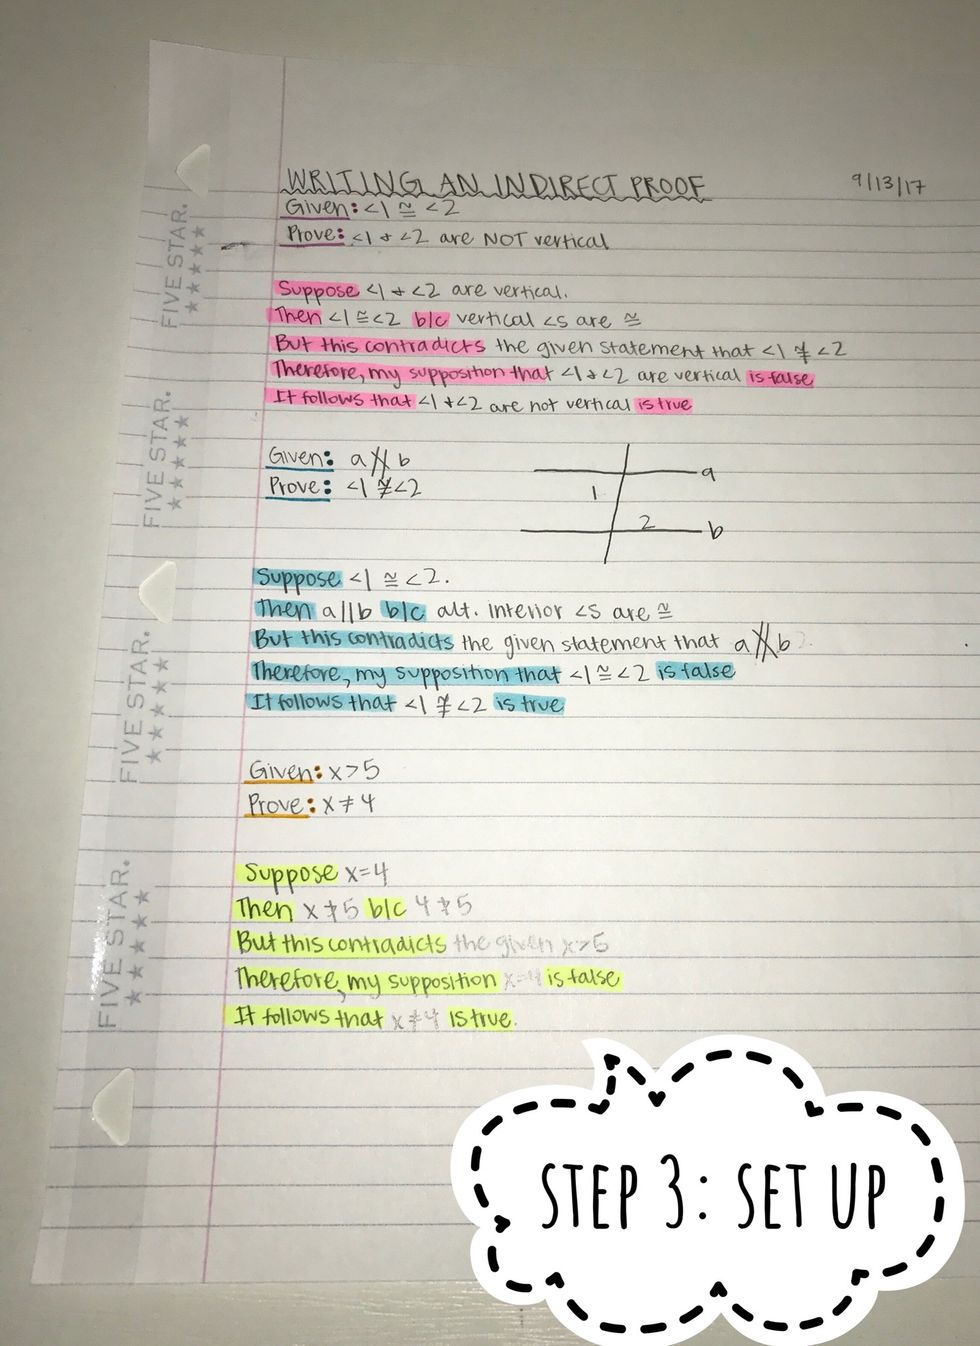 WRITING AN INDIRECT PROOF
9/13/17
Given: <1 ≅ <2
Prove: <1 + <2 are NOT vertical
Suppose <1 + <2 are vertical.
Then <1 ≅ <2 b/c vertical <s are ≅
But this contradicts the given statement that <1 ≇ <2
Therefore, my supposition that <1 + <2 are vertical is false
It follows that <1 + <2 are not vertical is true
Given: a ∦ b
Prove: <1 ≇ <2
a
1
2
b
Suppose <1 ≅ <2.
Then a || b b/c alt. interior <s are ≅
But this contradicts the given statement that a ∦ b
Therefore, my supposition that <1 ≅ <2 is false
It follows that <1 ≇ <2 is true
Given: x > 5
Prove: x ≠ 4
Suppose x = 4
Then x ≯ 5 b/c 4 ≯ 5
But this contradicts the given x > 5
Therefore, my supposition x = 4 is false
It follows that x ≠ 4 is true.
FIVE STAR.
FIVE STAR.
FIVE STAR.
FIVE STAR.
STEP 3: SET UP